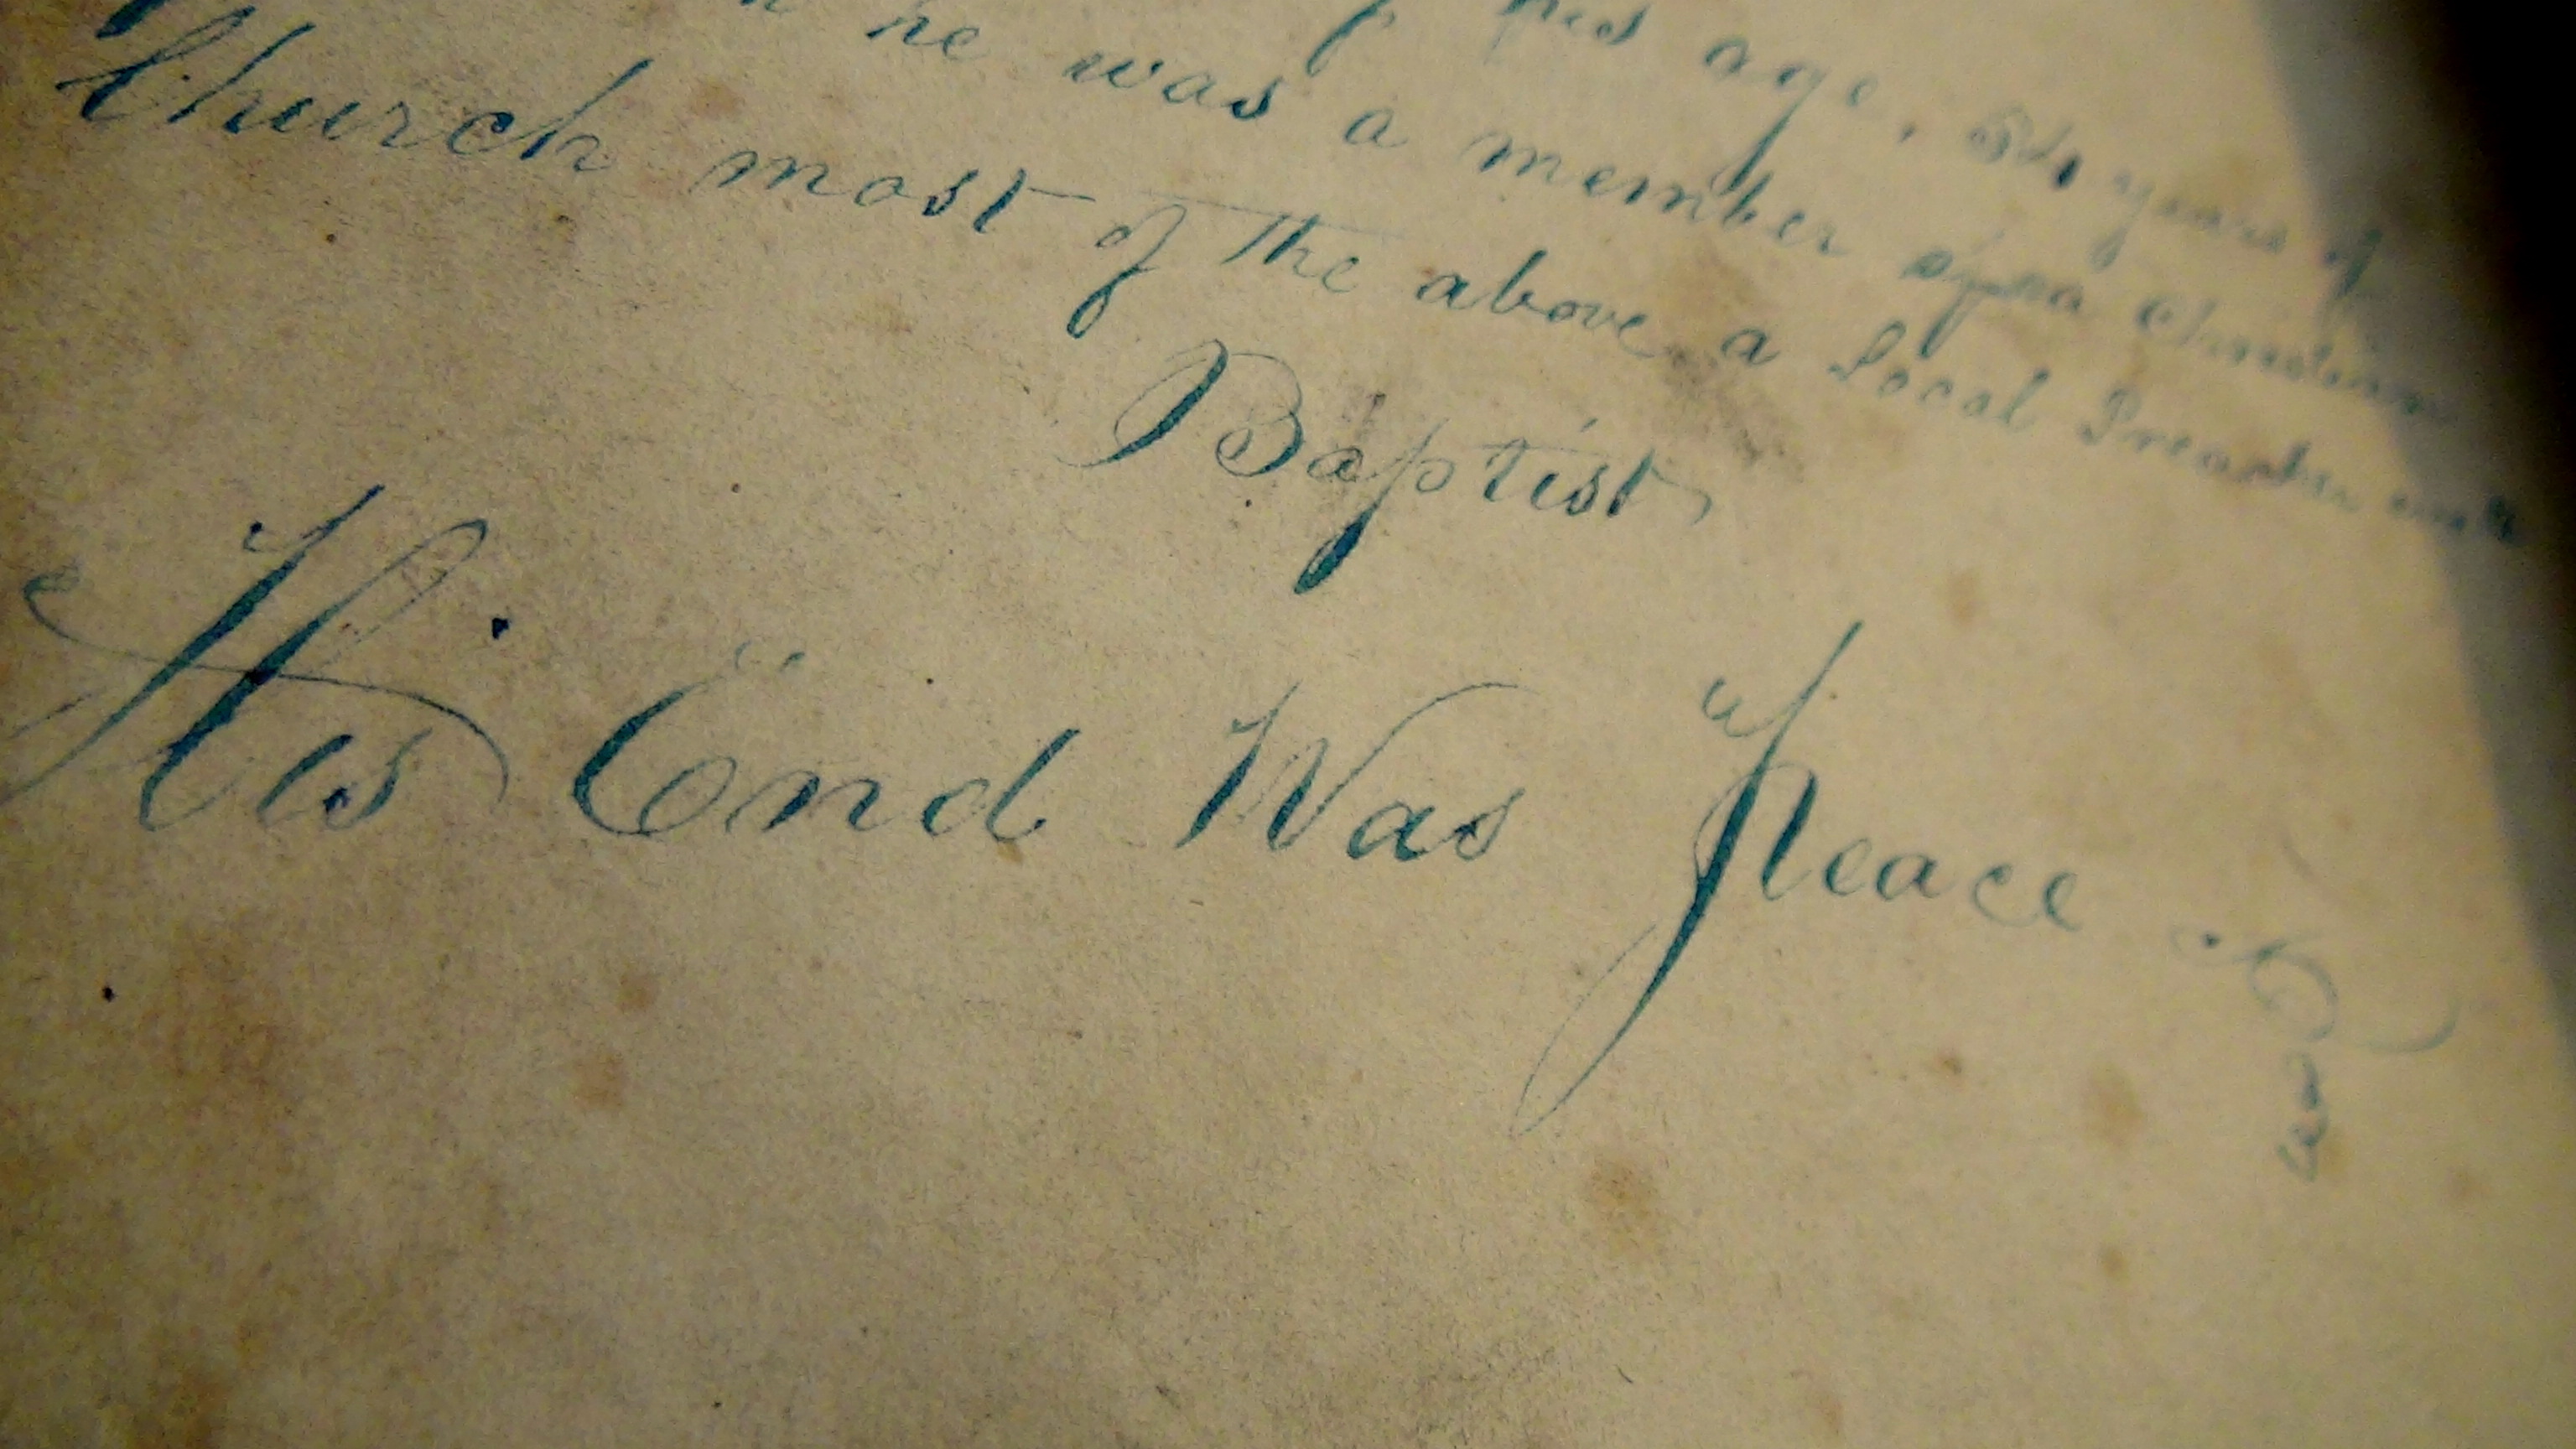 his age, 54 years of
he was a member of a Christian
Church most of the above a Local Preacher with
Baptist,
His End Was Peace